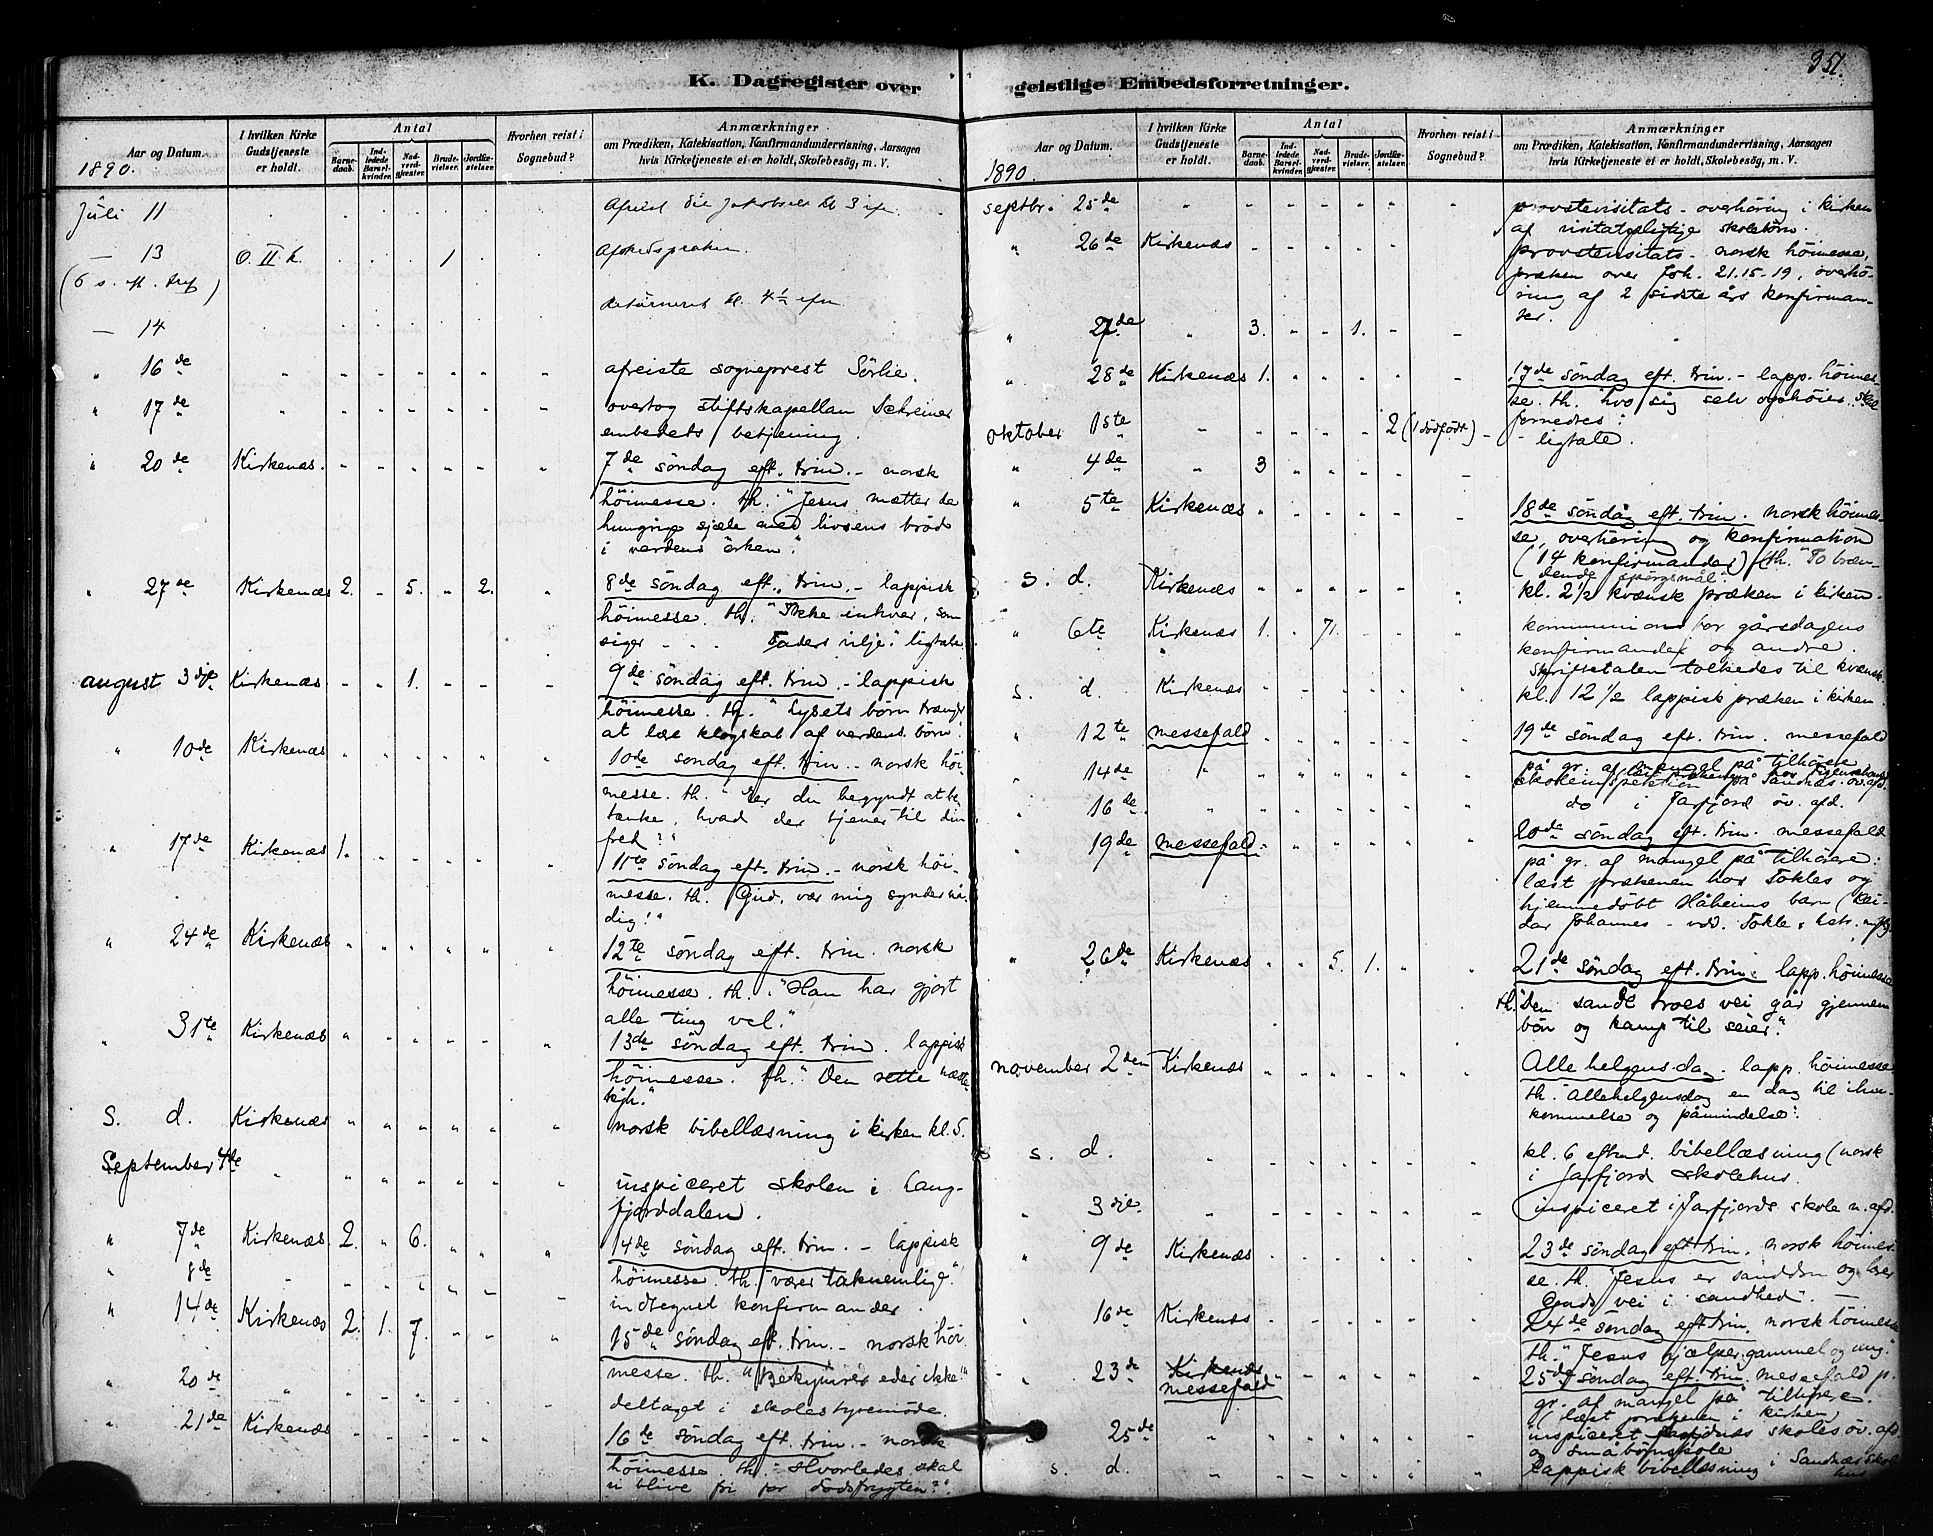 K. Dagregister over
Aar og Datum.
1890.
I hvilken Kirke
Gudstjeneste
er holdt.
Antal
Barne-
daab.
Ind-
ledede
Barsel-
kvinder.
Nad-
verd-
gjester.
Brude-
vielser.
Jordfæ-
stelser.
Hvorhen reist i
Sognebud?
Anmærkninger
om Prædiken, Katekisation, Konfirmandundervisning, Aarsagen
hvis Kirketjeneste ei er holdt, Skolebesög, m. V.
Juli 11
— 13 O. II k. 1
(6 s. ef. tref)
— 14
returneret kl. 4½ efm
" 16de afreiste sogneprest Sörlie.
" 17de overtog stiftskapellan Schreiner
embedets betjening.
" 20de Kirkenæs. 7de söndag eft. trin. - norsk
höimesse. th. "Jesus mætter de
hungrige sjæle med livsens bröd
i verdens örken."
" 27de Kirkenæs 2. 5. 2. 8de söndag eft. trin. - lappisk
höimesse. th. "Ikke enhver, som
siger - - - Faders vilje." ligtale
august 3dje Kirkenæs 1. 9de söndag eft. trin. - lappisk
höimesse. th. "Lysets börn trænge
at lære klogskab af verdens börn."
" 10de Kirkenæs 10de söndag eft. trin. - norsk höi-
messe. th. "Er du begyndt at be-
tænke, hvad der tjener til din
fred?"
" 17de Kirkenæs 1. 11te söndag eft. trin. - norsk höi-
messe. th. "Gud, vær mig synder nå-
dig!"
" 24de Kirkenæs 12te söndag eft. trin. norsk
höimesse. th. "Han har gjort
alle ting vel."
" 31te Kirkenæs 13de söndag eft. trin. lappisk
höimesse. th. "Den rette næste
kjh."
S. d. Kirkenæs norsk bibellæsning i kirken kl. 5.
September 4de inspiceret skolen i Lang-
fjorddalen.
" 7de Kirkenæs 2. 6. 14de söndag eft. trin. - lappisk
höimesse. th. "værer taknemlige."
" 8de indtegned konfirmander.
" 14de Kirkenæs 2. 1. 7. 15de söndag eft. trin. - norsk höi
messe. th. "Bekymrer eder ikke!"
" 20de deltaget i skolestyremöde.
" 21de Kirkenæs 16de söndag eft. trin. - norsk
höimesse th. "Hvorledes skal
vi blive fri for dödsfrygten?"
geistlige Embedsforretninger.
351.
Aar og Datum.
1890.
I hvilken Kirke
Gudstjeneste
er holdt.
Antal
Barne-
daab.
Ind-
ledede
Barsel-
kvinder.
Nad-
verd-
gjester.
Brude-
vielser.
Jordfæ-
stelser.
Hvorhen reist i
Sognebud?
Anmærkninger
om Prædiken, Katekisation, Konfirmandundervisning, Aarsagen
hvis Kirketjeneste ei er holdt, Skolebesög, m. V.
septbr. 25de provstevisitats - overhöring i kirken
af visitatspligtige skolebörn.
" 26de Kirkenæs provstevisitats - norsk höimesse,
præken over Joh. 21.15-19, overhö-
ring af 2 sidste års konfirman-
der.
" 27de 3. 1.
" 28de Kirkenæs 1. 17de söndag eft. trin. - lapp. höimes-
se. th. "hvo sig selv ophöier, skal
fornedres".
oktober 1ste 2 (1 dödfödt) - ligtale.
" 4de 3
" 5te Kirkenæs 18de söndag eft. trin. norsk höimes-
se, overhöring og konfirmation
(14 konfirmander) th. "To bræn-
dende spörgsmål".
s. d. Kirkenæs kl. 2½ kvænsk præken i kirken.
" 6te Kirkenæs 1. 71. kommunion for gårsdagens
konfirmander og andre.
Skriftetalen tolkedes til kvænsk.
s. d. Kirkenæs kl. 12½ lappisk præken i kirken.
" 12te messefald 19de söndag eft. trin. messefald
på gr. af mangel på tilhörere
" 14de skoleinspektion på Sandnæs öv. afd.
" 16de do i Jarfjord öv. afd.
" 19de messefald 20de söndag eft. trin. messefald
på gr. af mangel på tilhörere:
læst prækenen hos Tokles og
hjemmedöbt Håheims barn
Johannes
" 26de Kirkenæs 5. 1. 21de söndag eft. trin. lapp. höimesse
th. "Den sande troes vei går gjennem
bön og kamp til seier."
november 2den Kirkenæs Allehelgensdag. lapp. höimesse
th. "Allehelgensdag en dag til ihu-
kommelse og påmindelse".
s. d. kl. 6 efterm. bibellæsning (norsk
i Jarfjord skolehus.
" 3dje. inspiceret i Jarfjords skole n. afd.
" 9de Kirkenæs 23de söndag eft. trin. norsk höimes-
se. th. "Jesus er sanddru og lærer
Guds vei i sandhed".
" 16de Kirkenæs 24de söndag eft trin. norsk höimesse
th. "Jesus hjælper gammel og ung."
" 23de Kirkenæs
messefald 25de söndag eft. trin. messefald p.
gr. af mangel på tilhörere.
(læst prækenen i kirken
" 25de inspiceret skoles öv. afd
og småbörnskole
s. d. Lappisk bibellæsning i Sandnæs skole
hus